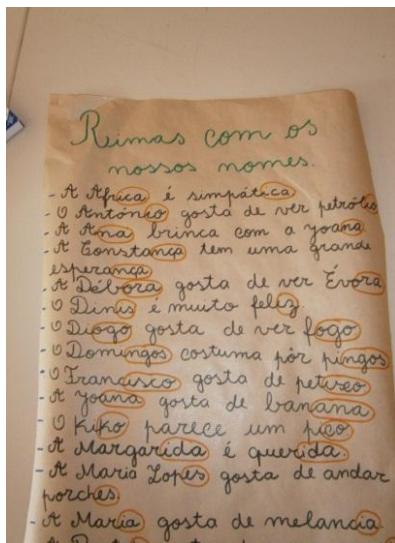 Rimas com os
nossos nomes.
- A África é simpática
- O António gosta de ver petróleo
- A Ana brinca com a Joana
- A Constança tem uma grande
esperança
- A Débora gosta de ver Évora
- O Dinis é muito feliz.
- O Diogo gosta de ver fogo
- O Domingos costuma pôr pingos
- O Francisco gosta de petisco
- A Joana gosta de banana
- O Kiko parece um pico
- A Margarida é querida.
- A Maria Lopes gosta de andar
porches.
- A Maria gosta de melancia.